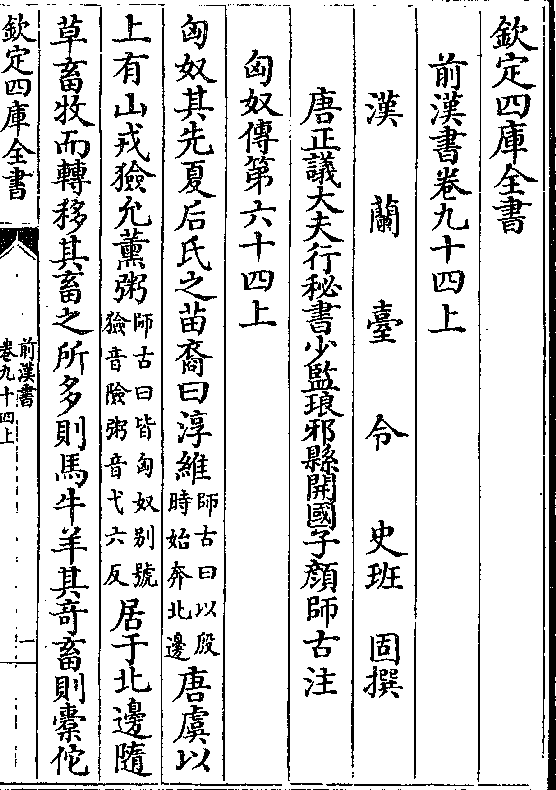 欽定四庫全書
前漢書卷九十四上
漢蘭臺令史班固撰
唐正議大夫行秘書少監琅邪縣開國子顔師古注
匈奴傳第六十四上
匈奴其先夏后氏之苗裔曰淳維師古曰以殷時始奔北邊唐虞以
上有山戎獫允薰粥師古曰皆匈奴别號獫音險粥音弋六反居于北邊隨
草畜牧而轉移其畜之所多則馬牛羊其竒畜則橐佗
欽定四庫全書
前漢書
卷九十四上
一